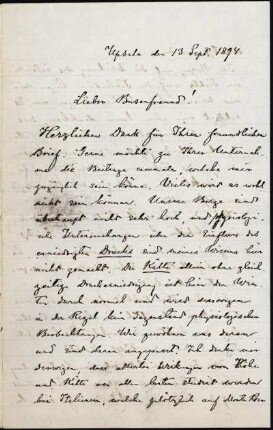 Upsala den 13 Sept. 1894.
Lieber Busenfreund!
Herzlichen Dank für Ihren freundlichen
Brief. Gerne möchte zu Ihrer Unternehm.
nur die Beiträge senden, welche mir
möglich sein können. Vieles wird es wohl
nicht sein können. Unsere Berge sind
überhaupt nicht sehr hoch, und physiologi-
sche Untersuchungen über den Einfluss des
erniedrigten Druckes sind meines Wissens hier
nicht gemacht. Die Kälte allein ohne gleich
zeitige Druckerniedrigung ist hier im Win-
ter durch normal und wird deswegen
in der Regel kein Gegenstand physiologischer
Beobachtungen. Wir gewöhnen uns daran
und sind daran angepasst. Ich denke mir
deswegen, dass allerlei Wirkungen von Höhe
und Kälte am allerbesten studirt werden
bei Italienern, welche plötzlich auf